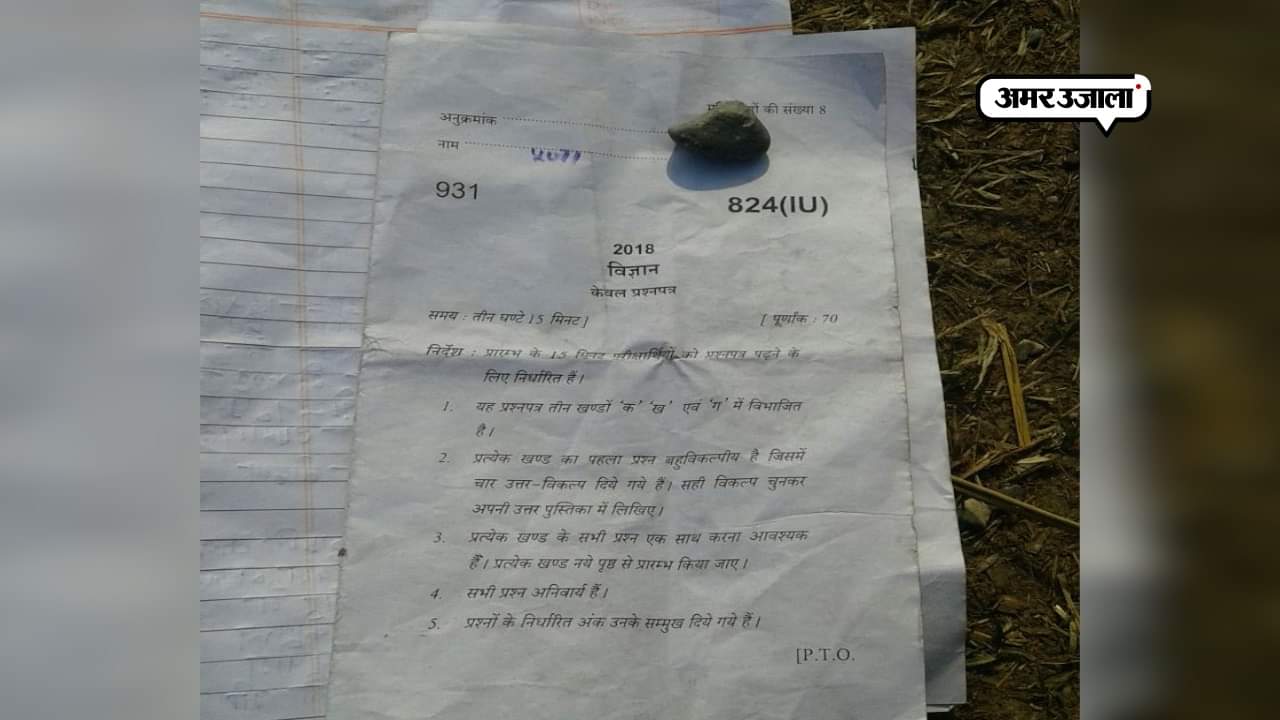 अमर उजाला
की संख्या 8
अनुक्रमांक
नाम
931
824(IU)
2018
विज्ञान
केवल प्रश्नपत्र
समय : तीन घण्टे 15 मिनट ]
[ पूर्णांक : 70
निर्देश : प्रारम्भ के 15 मिनट परीक्षार्थियों को प्रश्नपत्र पढ़ने के
लिए निर्धारित हैं।
1. यह प्रश्नपत्र तीन खण्डों 'क' 'ख' एवं 'ग' में विभाजित
है।
2. प्रत्येक खण्ड का पहला प्रश्न बहुविकल्पीय है जिसमें
चार उत्तर-विकल्प दिये गये हैं। सही विकल्प चुनकर
अपनी उत्तर पुस्तिका में लिखिए।
3. प्रत्येक खण्ड के सभी प्रश्न एक साथ करना आवश्यक
हैं। प्रत्येक खण्ड नये पृष्ठ से प्रारम्भ किया जाए।
4. सभी प्रश्न अनिवार्य हैं।
5. प्रश्नों के निर्धारित अंक उनके सम्मुख दिये गये हैं।
[P.T.O.